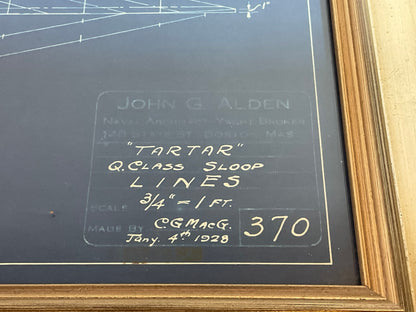 1"
JOHN G. ALDEN
NAVAL ARCHITECT YACHT BROKER
148 STATE ST. BOSTON, MAS.
"TARTAR"
Q. CLASS SLOOP
LINES
SCALE 3/4" = 1 FT.
MADE BY C.G. MACG.
Jany. 4th 1928
370